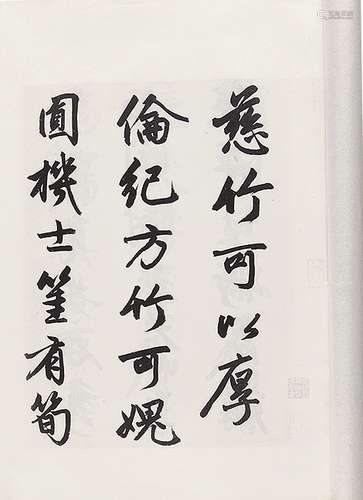 慈竹可以厚
倫紀方竹可媿
圓機士筀有筍